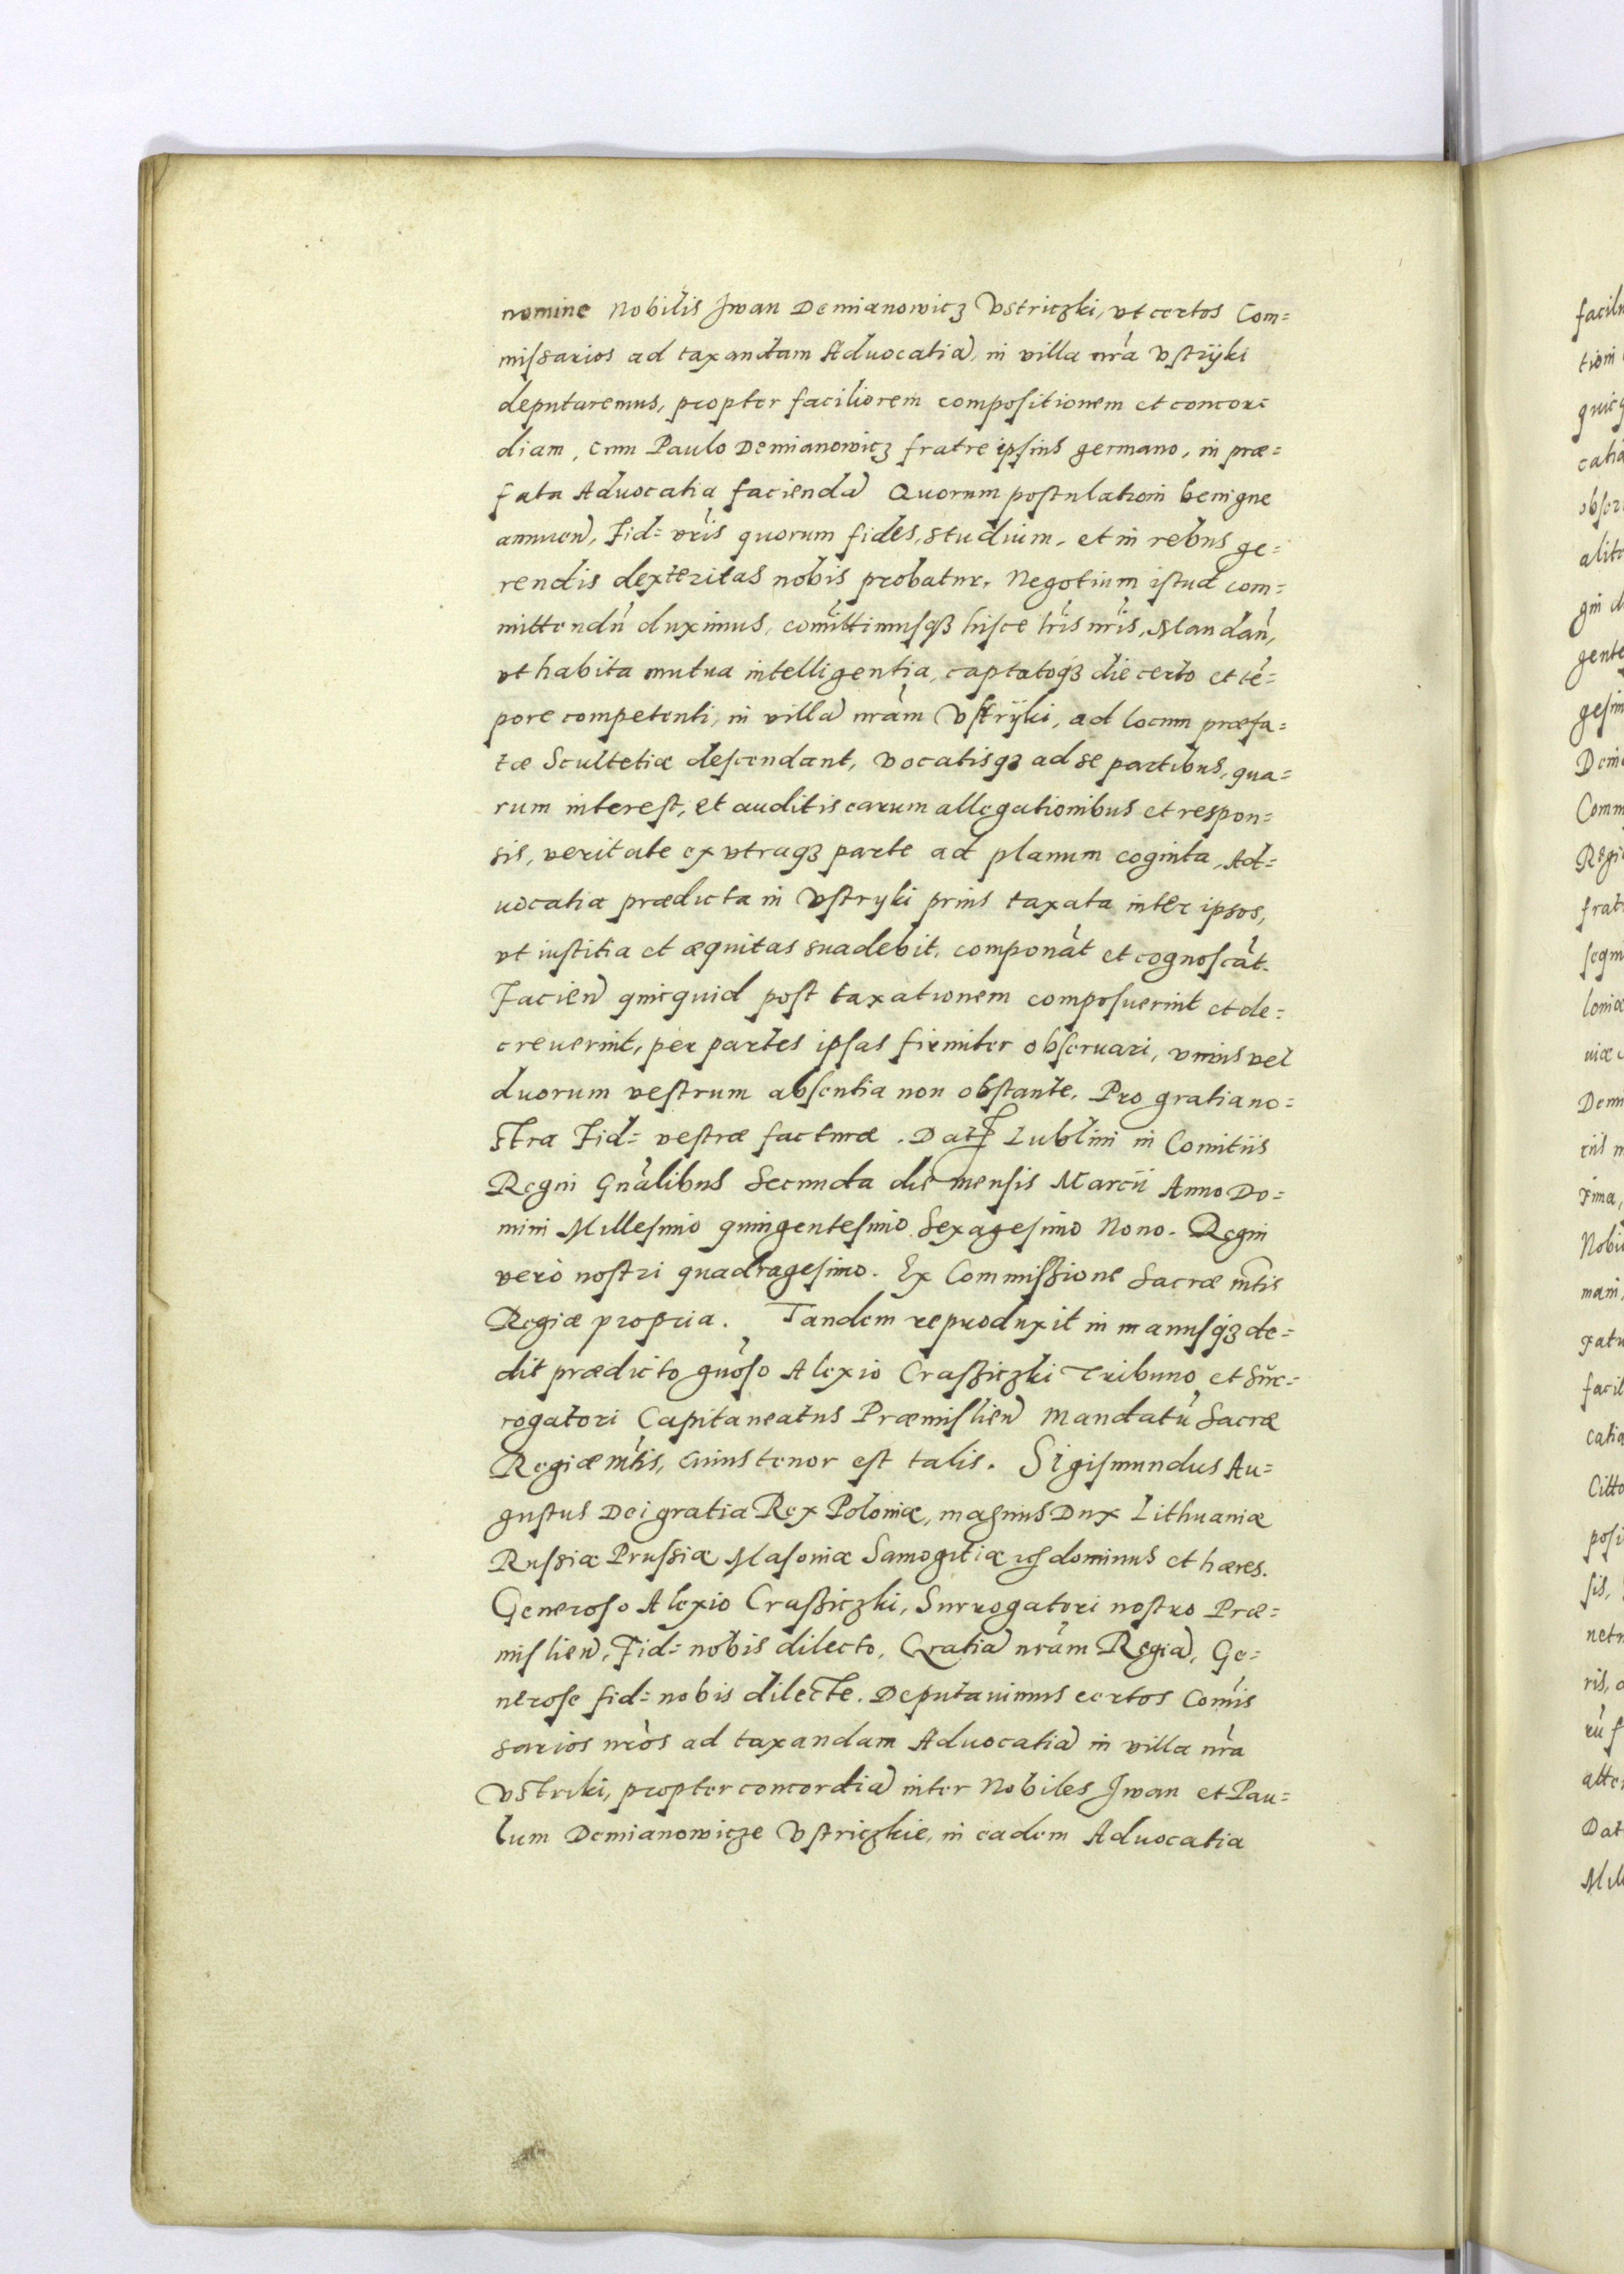 nomine Nobilis Jwan Demianowicz Vstriczki, vt certos Com=
missarios ad taxandam Aduocatia͂, in villa nr̃a vstrÿki
deputaremus, propter faciliorem compositionem et concor=
diam, cum Paulo Demianowicz fratre ipsius germano, in præ=
fata Aduocatia facienda͂ Quorum postulationi benigne
annuen͂, Fid= vr̃is quorum fides, studium, et in rebus ge=
rendis dexteritas nobis probatur, Negotium istud com=
mittendũ duximus, com̃ittimusqȝ hisce lr̃is nr̃is, Mandañ,
vt habita mutua intelligentia, captatoqȝ die certo et tẽ=
pore competenti, in villa͂ nr̃am Vstrÿki, ad locum præfa=
tæ Scultetiæ descendant, vocatisqȝ ad se partibus, qua=
rum interest, et auditis earum allegationibus et respon=
sis, veritate ex vtraqȝ parte ad planum cognita, Ad=
uocatia prædicta in Vstryki prius taxata inter ipsos,
vt iustitia et æquitas suadebit, componãt et cognoscãt.
Facien͂ quicquid post taxationem composuerint et de=
creuerint, per partes ipsas firmiter obseruari, vnius vel
duorum vestrum absentia non obstante, Pro gratia no=
stra Fid= vestræ facturæ. Dat̃ Lublini in Comitiis
Regni Gnãlibus Secunda die mensis Marcii Anno Do=
mini Millesimo quingentesimo Sexagesimo Nono. Regni
verò nostri quadragesimo. Ex Commissione Sacræ mt̃is
Regiæ propria. Tandem reproduxit in manusqȝ de=
dit prædicto gnõso Alexio Crassiczki Tribuno et Sur=
rogatori Capitaneatus Præmislien͂ Mandatũ Sacræ
Regiæ mt̃is, cuius tenor est talis. Sigismundus Au=
gustus Dei gratia Rex Poloniæ, magnus Dux Lithuaniæ
Russiæ Prussiæ Masoniæ Samogitiæ ꝛc dominus et hæres.
Generoso Alexio Crassiczki, Surrogatori nostro Præ=
mislien͂, Fid= nobis dilecto, Gratia͂ nr̃am Regia͂, Ge=
nerose fid= nobis dilecte. Deputauimus certos Com̃is
sarios nr̃os ad taxandam Aduocatia͂ in villa nr̃a
Vstriki, propter concordia͂ inter Nobiles Jwan et Pau=
lum Demianowicze Vstriczkie, in eadem Aduocatia